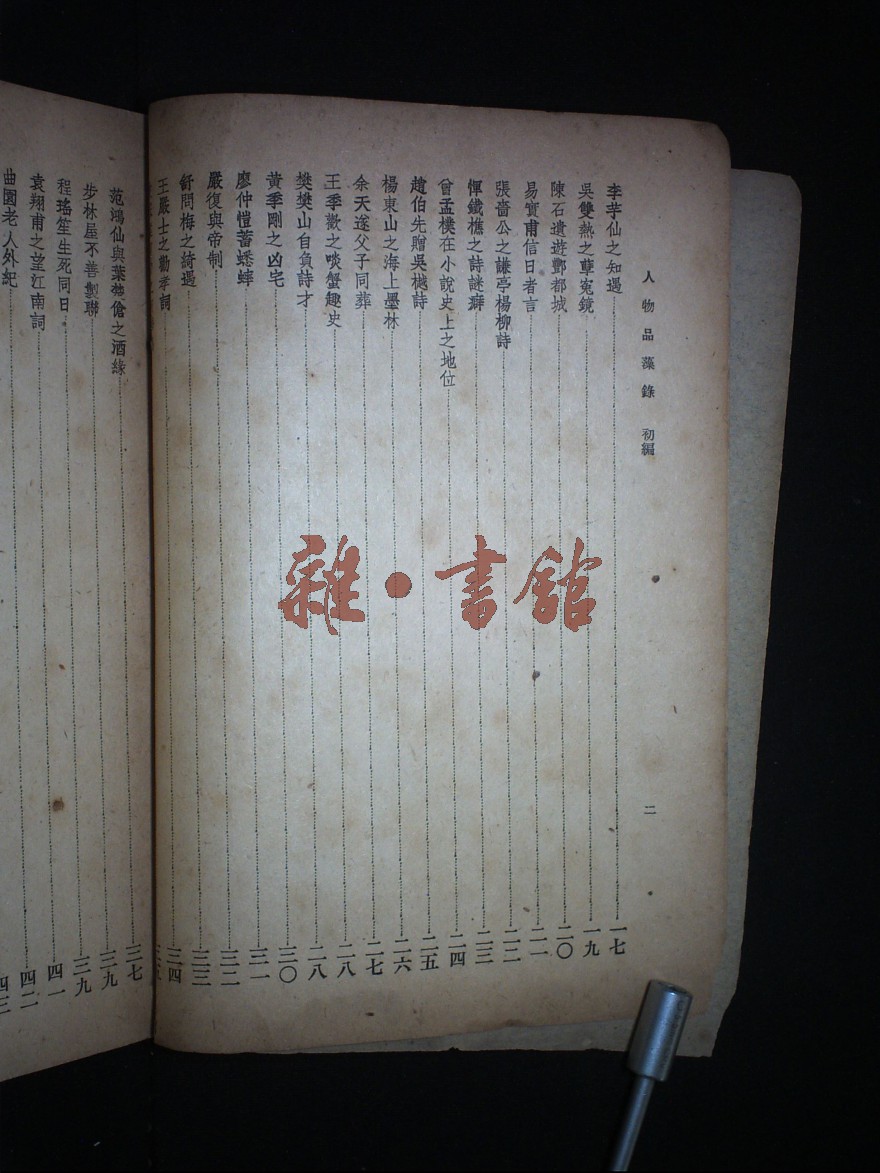 人物品藻錄 初編 二
李芋仙之知遇 一七
吳雙熱之孽寃鏡 一九
陳石遺遊酆都城 二〇
易實甫信日者言 二一
張嗇公之謙亭楊柳詩 二二
惲鐵樵之詩謎癖 二三
曾孟樸在小說史上之地位 二四
趙伯先贈吳樾詩 二五
楊東山之海上墨林 二六
余天遂父子同葬 二七
王季歡之啖蟹趣史 二八
樊樊山自負詩才 二八
黃季剛之凶宅 三〇
廖仲愷蓄蟋蟀 三一
嚴復與帝制 三二
舒問梅之綺遇 三三
王嚴士之勸孝詞 三四
范鴻仙與葉楚傖之酒緣 三七
步林屋不善製聯 三九
程瑤笙生死同日 三九
袁翔甫之望江南詞 四一
曲園老人外紀 四二
四三
雜·書館